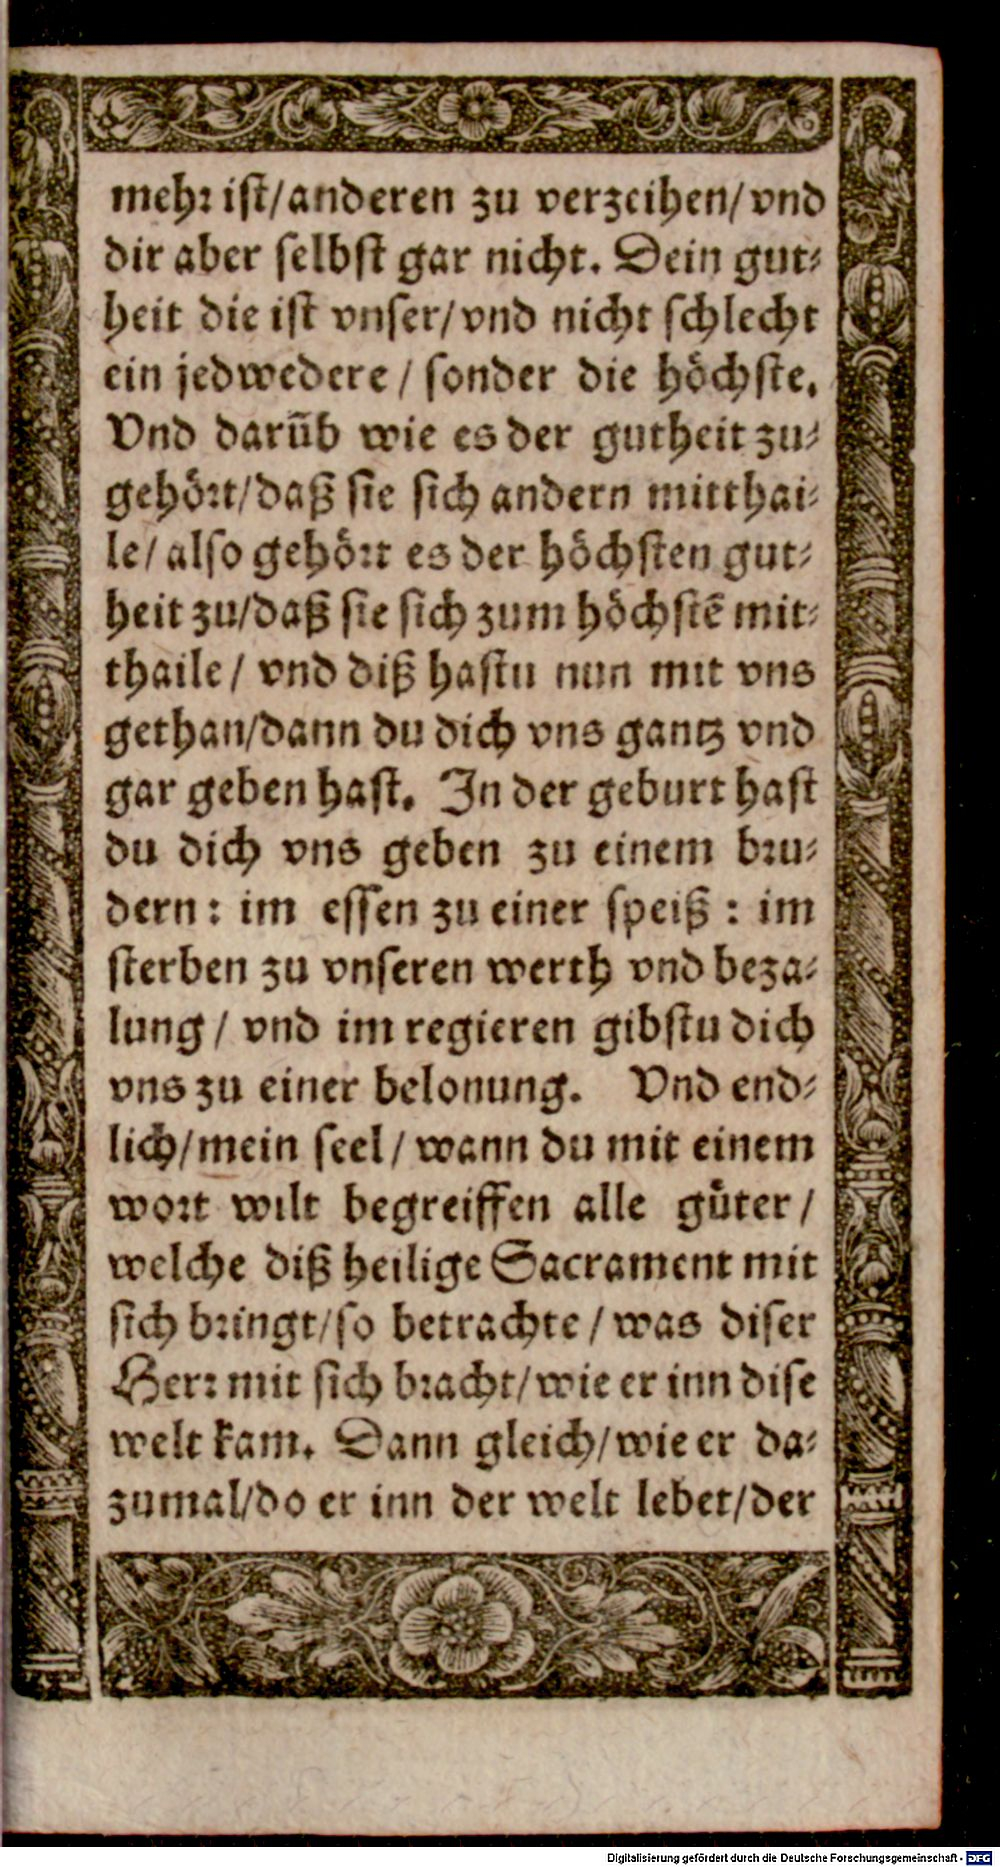 mehr ist/anderen zu verzeihen/vnd
dir aber selbst gar nicht. Dein gut⸗
heit die ist vnser/vnd nicht schlecht
ein jedwedere / sonder die höchste.
Vnd darūb wie es der gutheit zu⸗
gehört/daß sie sich andern mitthai⸗
le/ also gehört es der höchsten gut⸗
heit zu/daß sie sich zum höchstē mit⸗
thaile / vnd diß hastu nun mit vns
gethan/dann du dich vns gantz vnd
gar geben hast. In der geburt hast
du dich vns geben zu einem bru⸗
dern: im essen zu einer speiß : im
sterben zu vnseren werth vnd beza⸗
lung / vnd im regieren gibstu dich
vns zu einer belonung. Vnd end⸗
lich/mein seel / wann du mit einem
wort wilt begreiffen alle güter /
welche diß heilige Sacrament mit
sich bringt/so betrachte / was diser
Herr mit sich bracht/wie er inn dise
welt kam. Dann gleich/wie er da⸗
zumal/do er inn der welt lebet/der
Digitalisierung gefördert durch die Deutsche Forschungsgemeinschaft - DFG